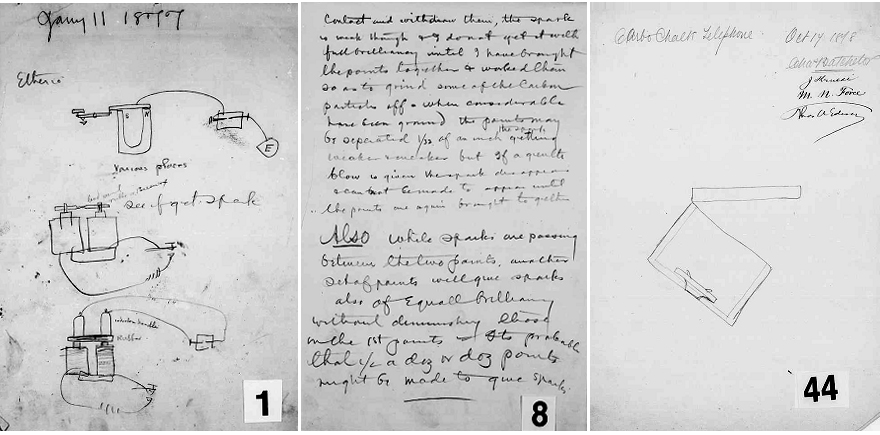 Jany 11
Etheric
S N
E
Various places
see if get spark
Rubber
1
Contact and withdraw them, the spark
is weak though & do not get it with
full brilliancy until I have brought
the points together & worked them
so as to grind some of the Carbon
particles off - when considerable
have been ground the points may
be separated 1/32 of an inch the spark getting
weaker & weaker but if a quick
blow is given the spark disappears
& cannot be made to appear until
the points are again brought to gether
Also while sparks are passing
between the two points, another
set of points will give sparks
also of Equall brilliancy
without diminishing those
in the 1st points - Its probable
that 1/2 a doz or doz points
might be made to give sparks.
8
Carbo Chalk Telephone Oct 17 1878
Chas Batchelor
J Kruesi
M. N. Force
Thos A Edison
44